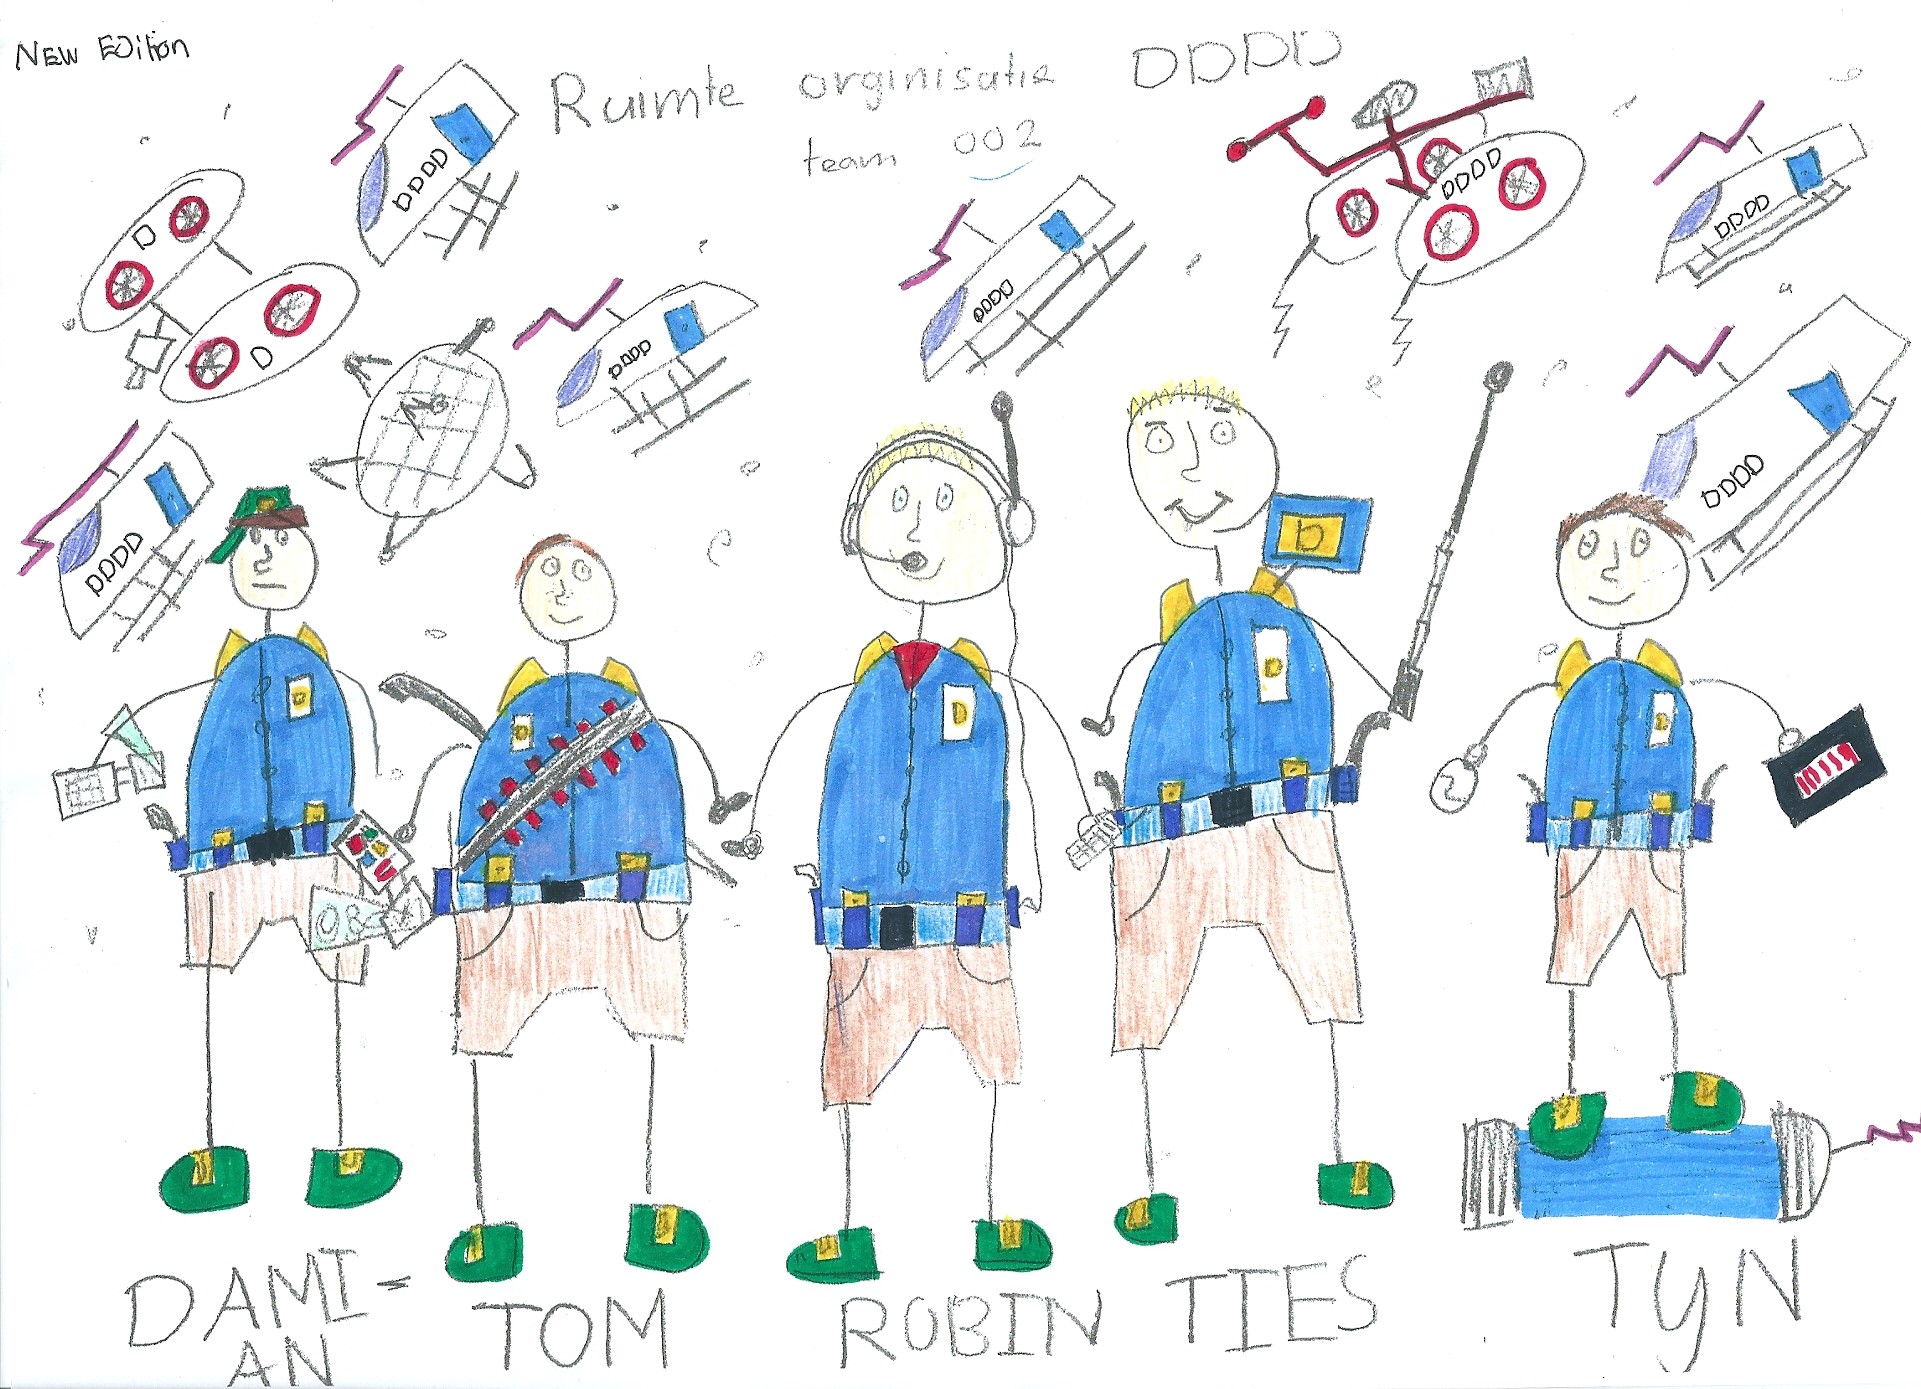 New Edition
Ruimte orginisatie DDDD
team 002
DDDD
DDDD
DDDD
D
DDDD
D
DDDD
DDDD
DDDD
DDDD
D
D
D
D
D
D
DAMI-
AN
TOM
ROBIN
TIES
TYN